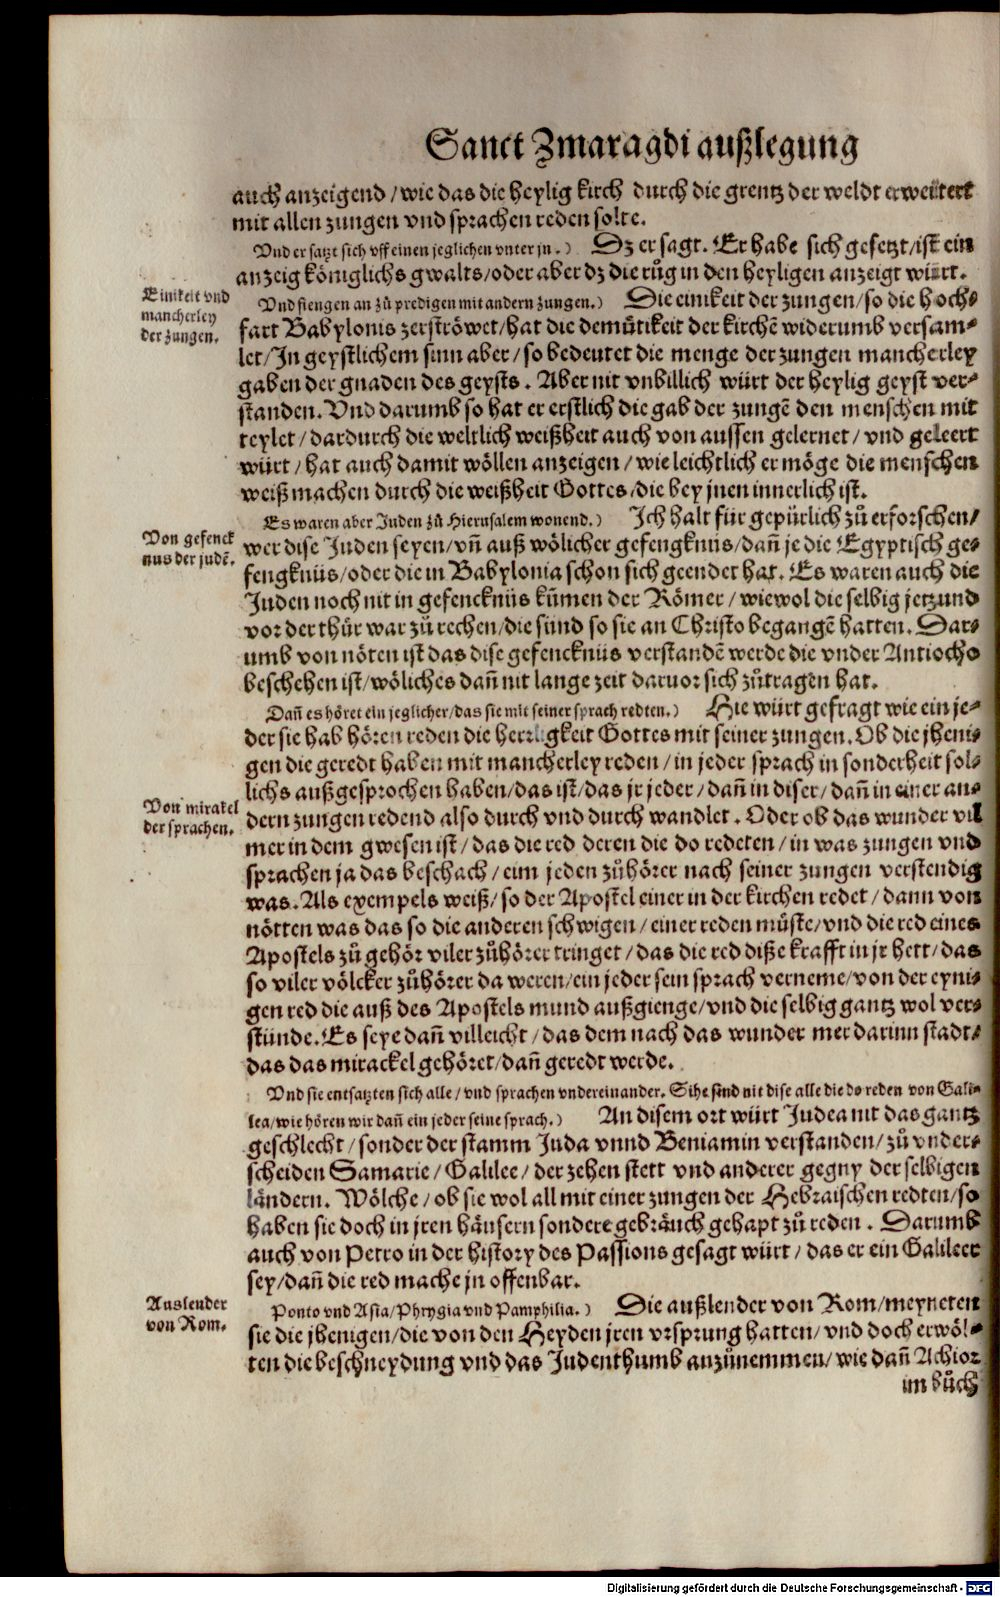 Sanct Zmaragdi außlegung
auch anzeigend/wie das die heylig kirch durch die grentz der weldt erweitert
mit allen zungen vnd sprachen reden solte.
Vnd er satzt sich vff einen jeglichen vnter jn.) Dz er sagt. Er habe sich gesetzt/ist ein
anzeig königlichs gwalts/oder aber dz die růg in den heyligen anzeigt würt.
Einikeit vnd
mancherley
der zungen.
Vnd fiengen an zů predigen mit andern zungen.) Die einikeit der zungen/so die hoch⸗
fart Babylonis zerströwet/hat die demůtikeit der kirchē widerumb versam⸗
let/In geystlichem sinn aber/so bedeutet die menge der zungen mancherley
gaben der gnaden des geysts. Aber nit vnbillich würt der heylig geyst ver⸗
standen. Vnd darumb so hat er erstlich die gab der zungē den menschen mit
teylet/dardurch die weltlich weißheit auch von aussen gelernet/vnd geleert
würt/hat auch damit wöllen anzeigen/wie leichtlich er möge die menschen
weiß machen durch die weißheit Gottes/die bey jnen innerlich ist.
Es waren aber Juden zů Hierusalem wonend.) Ich halt für gepürlich zů erforschen/
Von gefenck
nus der judē.
wer dise Juden seyen/vñ auß wölicher gefengknüs/dañ je die Egyptisch ge⸗
fengknüs/oder die in Babylonia schon sich geendet hat. Es waren auch die
Juden noch nit in gefencknüs kům̄en der Römer/wiewol die selbig jetzund
vor der thür war zů rechen/die sünd so sie an Christo begangē hatten. Dar⸗
umb von nöten ist das dise gefencknüs verstandē werde die vnder Antiocho
beschehen ist/wöliches dañ nit lange zeit daruor sich zůtragen hat.
Dañ es höret ein jeglicher/das sie mit seiner sprach redten.) Hie würt gefragt wie ein je⸗
der sie hab hören reden die herrligkeit Gottes mit seiner zungen. Ob die jheni⸗
gen die geredt haben mit mancherley reden/in jeder sprach in sonderheit sol⸗
lichs außgesprochen haben/das ist/das jr jeder/dañ in diser/dañ in einer an⸗
Von mirakel
der sprachen.
dern zungen redend also durch vnd durch wandlet. Oder ob das wunder vil
mer in dem gwesen ist/das die red deren die do redeten/in was zungen vnd
sprachen ja das beschach/eim jeden zůhörer nach seiner zungen verstendig
was. Als exempels weiß/so der Apostel einer in der kirchen redet/dann von
nötten was das so die anderen schwigen/einer reden müste/vnd die red eines
Apostels zů gehör viler zůhörer tringet/das die red diße krafft in jr hett/das
so viler völcker zůhörer da weren/ein jeder sein sprach verneme/von der eyni⸗
gen red die auß des Apostels mund außgienge/vnd die selbig gantz wol ver⸗
stünde. Es seye dañ villeicht/das dem nach das wunder mer darinn stadt⸗
das das mirackel gehöret/dañ geredt werde.
Vnd sie entsatzten sich alle/vnd sprachen vndereinander. Sihe sind nit dise alle die do reden von Gali⸗
lea/wie hören wir dañ ein jeder seine sprach.) An disem ort würt Judea nit das gantz
geschlecht/sonder der stamm Juda vnnd Beniamin verstanden/zů vnder⸗
scheiden Samarie/Galilee/der zehen stett vnd anderer gegny der selbigen
ländern. Wölche/ob sie wol all mit einer zungen der Hebraischen redten/so
haben sie doch in jren häusern sondere gebräuch gehapt zů reden. Darumb
auch von Petro in der history des Passions gesagt würt/das er ein Galileer
sey/dañ die red mache jn offenbar.
Auslender
von Rom.
Ponto vnd Asia/Phrygia vnd Pamphilia.) Die außlender von Rom/meyneten
sie die jhenigen/die von den Heyden jren vrsprung hatten/vnd doch erwöl⸗
ten die beschneydung vnd das Judenthumb anzůnemmen/wie dañ Achior
im bůch
Digitalisierung gefördert durch die Deutsche Forschungsgemeinschaft - DFG